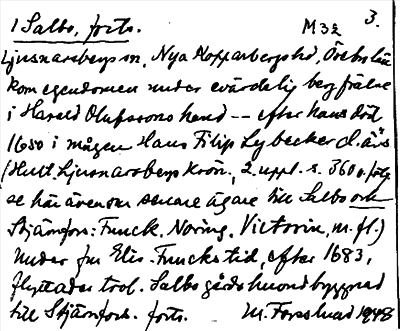 1 Salbo, forts. M32 3.
Ljusnarsbergs sn, Nya Kopparbergs hd, Örebro län
kom egendomen under evärdelig bergfrälse
i Harald Olufssons hand -- efter hans död
1650 i mågen Hans Filip Lybecker d.ä:s
(Hult, Ljusnarsbergs krön., 2. uppl. s. 360 o. följ.
se här även om senare ägare till Salbo och
Stjärnfors: Funck, Noring, Victorin, m.fl.)
Under fru Elis. Funcks tid, efter 1683,
flyttades trol. Salbo gårds huvudbyggnad
till Stjärnfors. forts. M. Forslund 1948